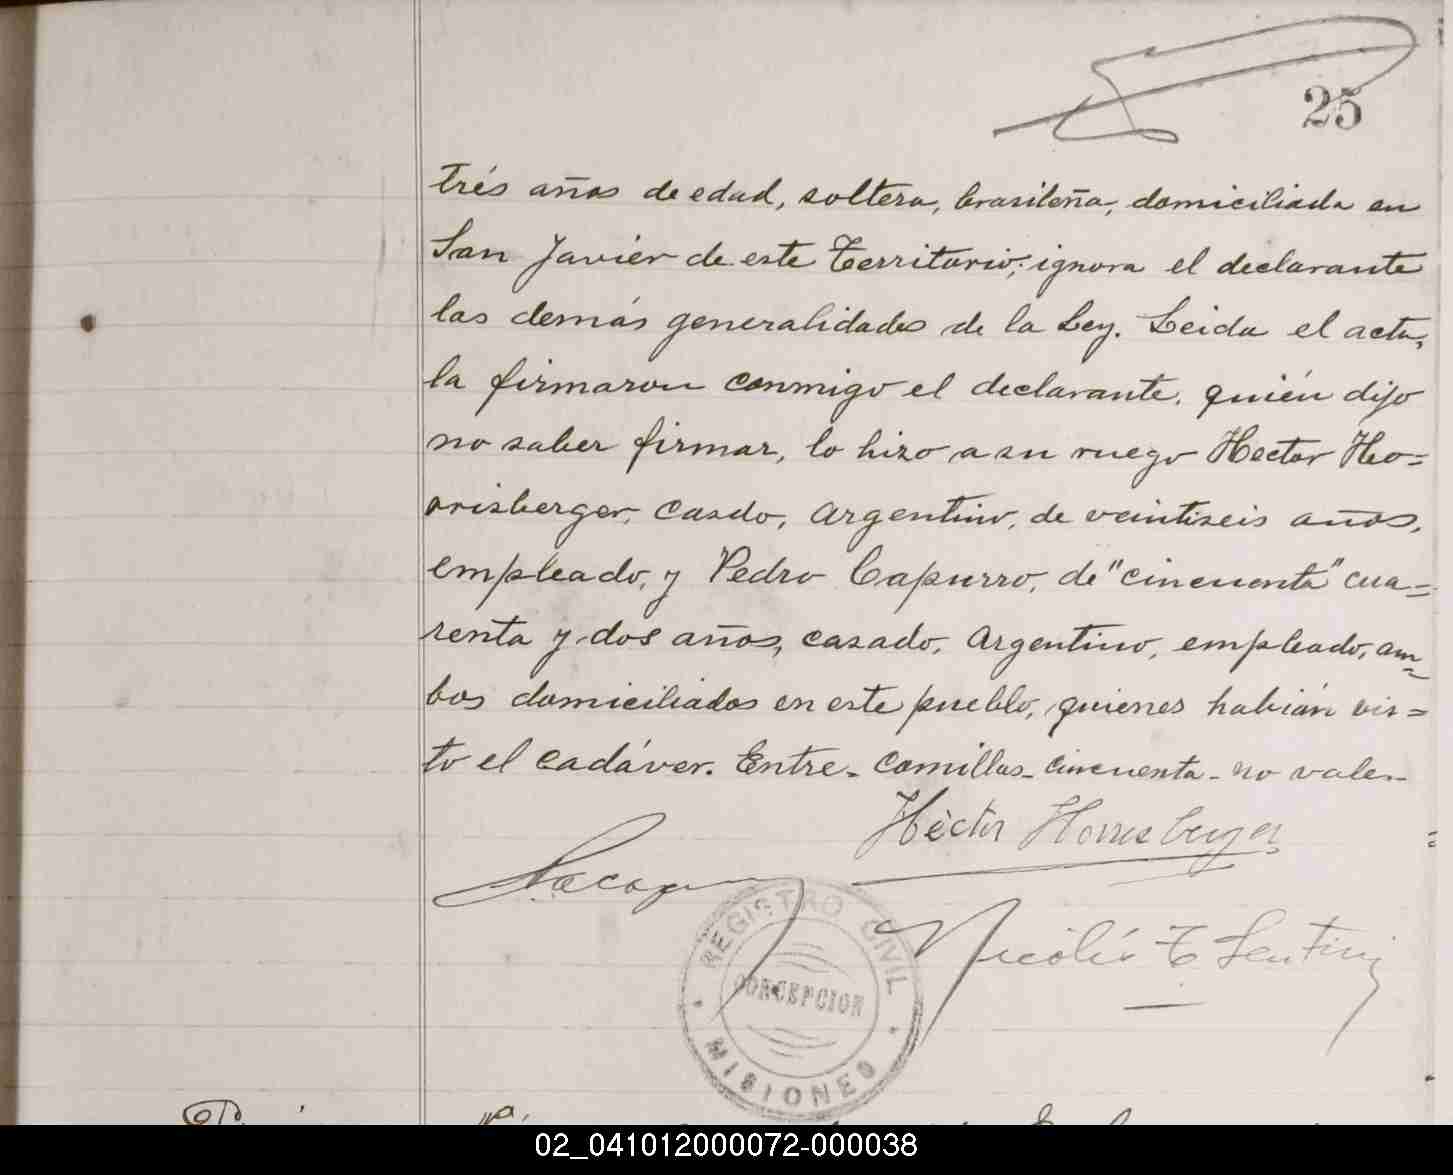 25
trés años de edad, soltera, brasileña, domiciliada en
San Javiér de este Territorio; ignora el declarante
las demás generalidades de la Ley. Leida el acta,
la firmaron conmigo el declarante, quién dijo
no saber firmar, lo hizo a su ruego Hector Ho=
rrisberger, casdo, Argentino, de veintiseis años,
empleado, y Pedro Capurro, de "cincuenta" cua=
renta y dos años, casado, Argentino, empleado, am=
bos domiciliados en este pueblo, quienes habián vis=
to el cadáver. Entre-comillas-cincuenta-no vale-
Héctor Horrisberger
Nicolás
REGISTRO CIVIL
CONCEPCION
MISIONES
02_041012000072-000038